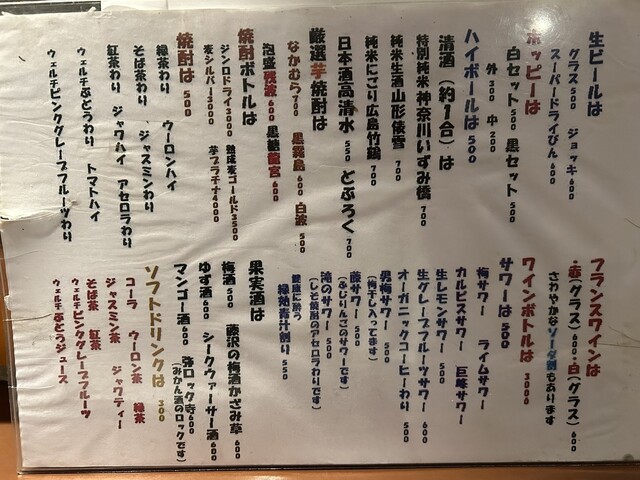 生ビールは
グラス500 ジョッキ600
スーパードライびん600
ホッピーは
白セット500 黒セット500
外300 中200
ハイボールは500
清酒（約1合）は
特別純米 神奈川いずみ橋700
純米生酒 山形俵雪700
純米にごり 広島竹鶴700
日本酒高清水550 どぶろく700
厳選芋焼酎は
なかむら700 黒霧島600 白波500
泡盛残波600 黒糖龍宮600
焼酎ボトルは
ジンロドライ3000 熟成麦ゴールド3500
麦シルバー3000 芋プラチナ4000
焼酎は500
緑茶わり ウーロンハイ
そば茶わり、ジャスミンわり
紅茶わり ジャワハイ アセロラわり
ウェルチぶどうわり トマトハイ
ウェルチピンクグレープフルーツわり
フランスワインは
・赤(グラス)600・白(グラス)600
さわやかなソーダ割もあります
ワインボトルは3000
サワーは500
梅サワー ライムサワー
カルピスサワー 巨峰サワー
生レモンサワー500
生グレープフルーツサワー600
オーガニックコーヒーわり500
男梅サワー500
(梅干し入ってます)
藤サワー500
(ふじりんごのサワーです)
滝のサワー500
(しそ焼酎のアセロラわりです)
健康に酔う
緑効青汁割り550
果実酒は
梅酒500 藤沢の梅酒かざみ草600
ゆず酒600 シークヮーサー酒600
マンゴー酒600 弥ロック寺600
(みかん酒のロックです)
ソフトドリンクは300
コーラ ウーロン茶 緑茶
ジャスミン茶 ジャワティー
そば茶 紅茶
ウェルチピンクグレープフルーツ
ウェルチぶどうジュース